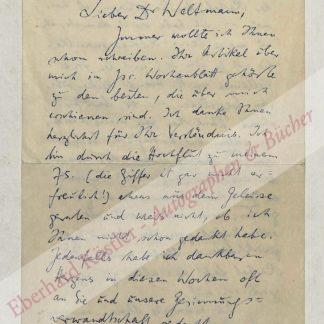 Lieber Dr Weltmann,
Immer wollte ich Ihnen
schon schreiben. Ihr Artikel über
mich in Isr. Wochenblatt gehörte
zu den besten, die über mich
erschienen sind. Ich danke Ihnen
herzlichst für Ihr Verständnis. Ich
bin durch die Hochflut zu meinem
75. (die Ziffer ist gar nicht er-
freulich!) etwas aus dem Geleise
geraten und weiss nicht, ob ich
Ihnen nicht schon gedankt habe.
Jedenfalls habe ich dankbaren
Herzens in diesen Wochen oft
an Sie und unsere Gesinnungs-
verwandtschaft gedacht
Eberhard Köstler - Autographen & Bücher